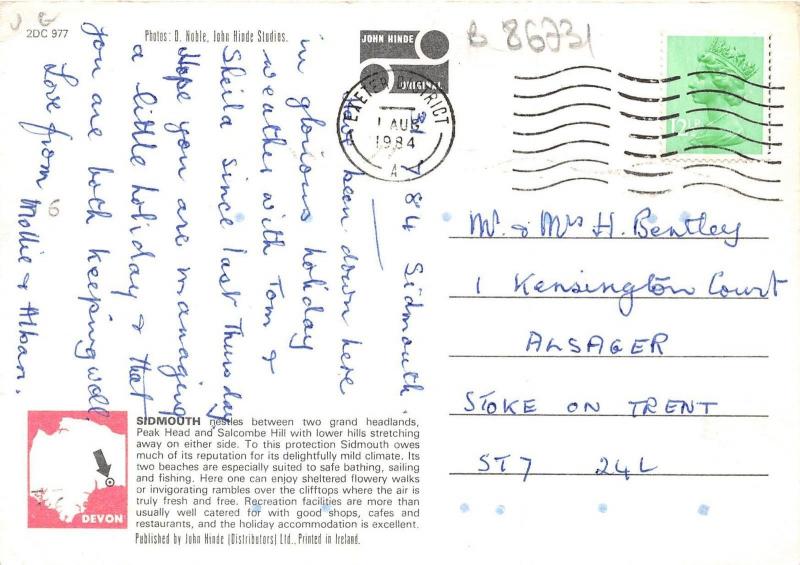 2DC 977
Photos: D. Noble, John Hinde Studios.
JOHN HINDE
ORIGINAL
B 86731
EXETER DISTRICT
1 AUG
1984
A
12½P
84 Sidmouth.
been down here
in glorious holiday
weather with Tom &
Sheila since last Thursday
Hope you are managing
a little holiday & that
you are both keeping well
Love from Mollie & Alban.
Mr. & Mrs H. Bentley
1 Kensington Court
ALSAGER
STOKE ON TRENT
ST7 24L
DEVON
SIDMOUTH nestles between two grand headlands,
Peak Head and Salcombe Hill with lower hills stretching
away on either side. To this protection Sidmouth owes
much of its reputation for its delightfully mild climate. Its
two beaches are especially suited to safe bathing, sailing
and fishing. Here one can enjoy sheltered flowery walks
or invigorating rambles over the clifftops where the air is
truly fresh and free. Recreation facilities are more than
usually well catered for with good shops, cafes and
restaurants, and the holiday accommodation is excellent.
Published by John Hinde (Distributors) Ltd., Printed in Ireland.